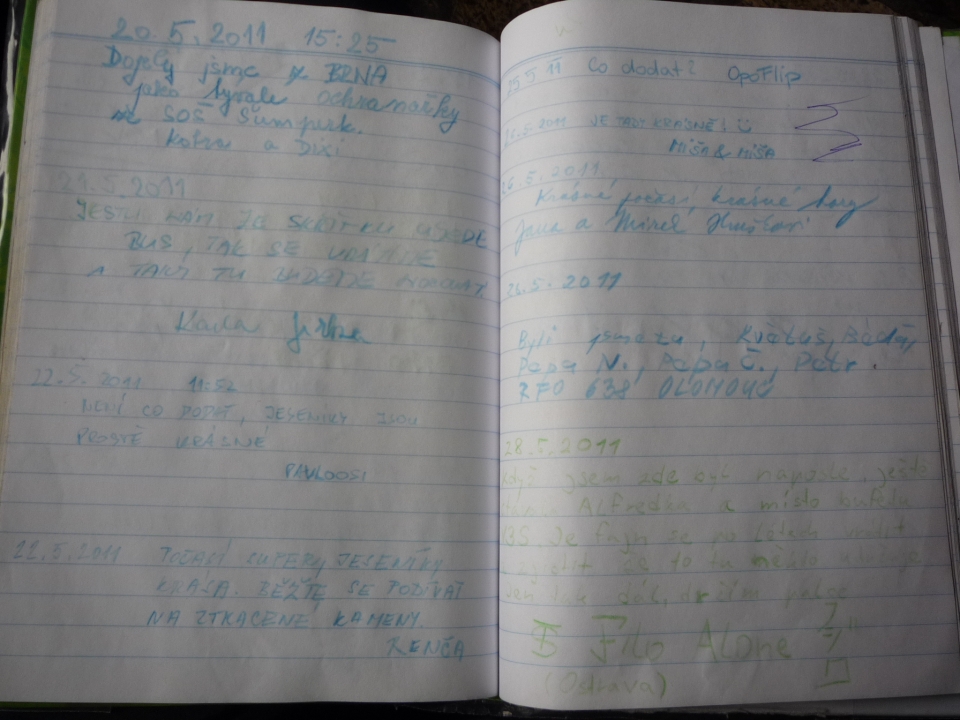 20.5.2011 15:25
Dojely jsme z BRNA
jako bývalé ochranářky
ze SOŠ Šumperk.
Kobra a Dixi
21.5.2011
JESTLI NÁM ZE SKŘÍTKU UJEDE
BUS, TAK SE
A TAKY TU BUDEME
Kača Jirka
22.5.2011 11:52
NENÍ CO DODAT, JESENÍKY JSOU
PROSTĚ KRÁSNÉ
PAVLOOSI
22.5.2011 POČASÍ SUPER, JESENÍKY
KRÁSA. BĚŽTE SE PODÍVAT
NA ZTRACENÉ KAMENY.
RENČA
25.5.11 Co dodat? OpoFlip
26.5.2011 JE TADY KRÁSNĚ! ☺
MIŠA & MIŠA
26.5.2011
Krásné počasí, krásné hory
Jana a Mirek
26.5.2011
Byli jsme tu, Květuš, Báďa,
Pepa N., Pepa Č., Petr.
ZPO 638 OLOMOUC
28.5.2011
Když jsem zde byl naposled, ještě
Alfredka a místo bufetu
BUS. Je fajn se po létech vrátit
a zjistit že to tu někdo
Jen tak dál, držím palce
Filo Alone
(Ostrava)